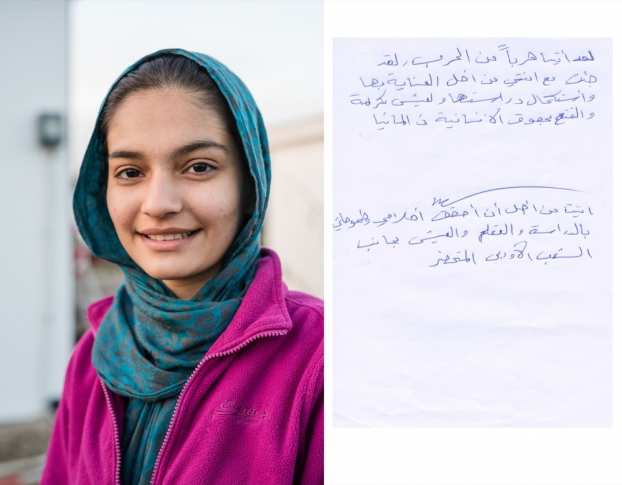 لقد اتينا هرباً من الحرب، لقد
جئت مع ابنتي من اجل العناية بها
واستكمال دراستها والعيش بكرامة
والتمتع بحقوق الانسانية في المانيا
اتيت من اجل أن أحقق أحلامي وطموحاتي
بالدراسة والتعلم والعيش بجانب
الشعب الأوربي المتحضر